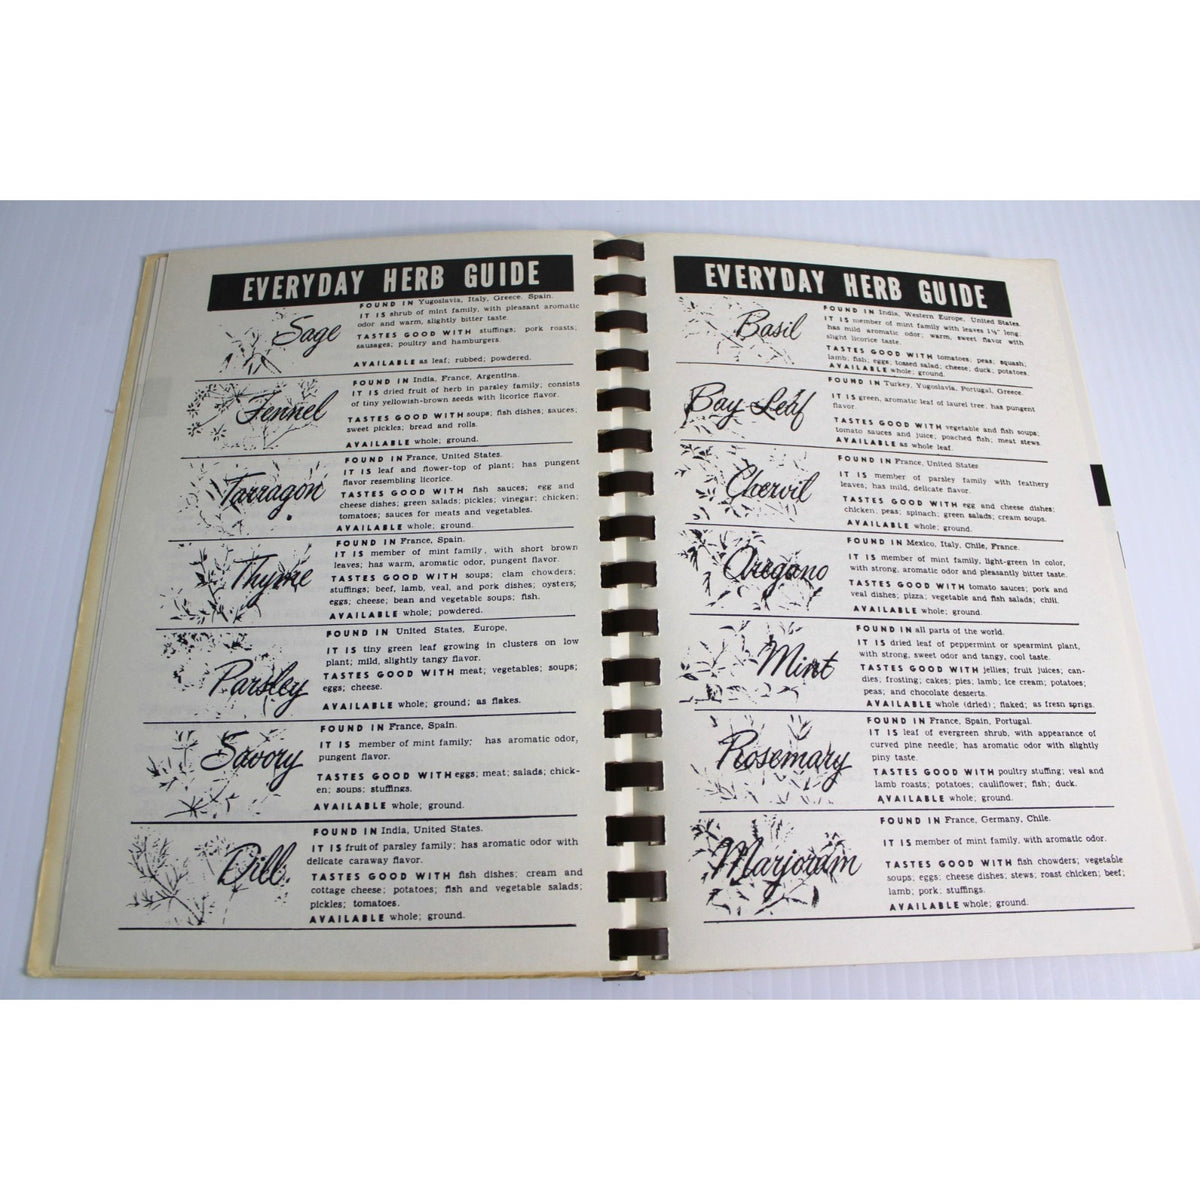 EVERYDAY HERB GUIDE
Sage
FOUND IN Yugoslavia, Italy, Greece. Spain.
IT IS shrub of mint family, with pleasant aromatic
odor and warm, slightly bitter taste.
TASTES GOOD WITH stuffings; pork roasts;
sausages; poultry and hamburgers.
AVAILABLE as leaf; rubbed; powdered.
Fennel
FOUND IN India, France, Argentina.
IT IS dried fruit of herb in parsley family; consists
of tiny yellowish-brown seeds with licorice flavor.
TASTES GOOD WITH soups; fish dishes; sauces;
sweet pickles; bread and rolls.
AVAILABLE whole; ground.
Tarragon
FOUND IN France, United States.
IT IS leaf and flower-top of plant; has pungent
flavor resembling licorice.
TASTES GOOD WITH fish sauces; egg and
cheese dishes; green salads; pickles; vinegar; chicken;
tomatoes; sauces for meats and vegetables.
AVAILABLE whole; ground.
Thyme
FOUND IN France, Spain.
IT IS member of mint family, with short brown
leaves; has warm, aromatic odor, pungent flavor.
TASTES GOOD WITH soups; clam chowders;
stuffings; beef, lamb, veal, and pork dishes; oysters;
eggs; cheese; bean and vegetable soups; fish.
AVAILABLE whole; powdered.
Parsley
FOUND IN United States, Europe.
IT IS tiny green leaf growing in clusters on low
plant; mild, slightly tangy flavor.
TASTES GOOD WITH meat; vegetables; soups;
eggs; cheese.
AVAILABLE whole; ground; as flakes.
Savory
FOUND IN France, Spain.
IT IS member of mint family; has aromatic odor,
pungent flavor.
TASTES GOOD WITH eggs; meat; salads; chick-
en; soups; stuffings.
AVAILABLE whole; ground.
Dill
FOUND IN India, United States.
IT IS fruit of parsley family; has aromatic odor with
delicate caraway flavor.
TASTES GOOD WITH fish dishes; cream and
cottage cheese; potatoes; fish and vegetable salads;
pickles; tomatoes.
AVAILABLE whole; ground.
EVERYDAY HERB GUIDE
Basil
FOUND IN India, Western Europe, United States.
IT IS member of mint family with leaves 1½" long;
has mild aromatic odor; warm, sweet flavor with
slight licorice taste.
TASTES GOOD WITH tomatoes; peas; squash;
lamb; fish; eggs; tossed salad; cheese; duck; potatoes.
AVAILABLE whole; ground.
Bay Leaf
FOUND IN Turkey, Yugoslavia, Portugal, Greece.
IT IS green, aromatic leaf of laurel tree, has pungent
flavor.
TASTES GOOD WITH vegetable and fish soups;
tomato sauces and juice; poached fish; meat stews.
AVAILABLE as whole leaf.
Chervil
FOUND IN France, United States
IT IS member of parsley family with feathery
leaves; has mild, delicate flavor.
TASTES GOOD WITH egg and cheese dishes;
chicken; peas; spinach; green salads; cream soups.
AVAILABLE whole; ground.
Oregano
FOUND IN Mexico, Italy, Chile, France.
IT IS member of mint family, light-green in color,
with strong, aromatic odor and pleasantly bitter taste.
TASTES GOOD WITH tomato sauces; pork and
veal dishes; pizza; vegetable and fish salads; chili.
AVAILABLE whole; ground.
Mint
FOUND IN all parts of the world.
IT IS dried leaf of peppermint or spearmint plant,
with strong, sweet odor and tangy, cool taste.
TASTES GOOD WITH jellies; fruit juices; can-
dies; frosting; cakes; pies; lamb; ice cream; potatoes;
peas; and chocolate desserts.
AVAILABLE whole (dried) ; flaked; as fresh sprigs.
Rosemary
FOUND IN France, Spain, Portugal.
IT IS leaf of evergreen shrub, with appearance of
curved pine needle; has aromatic odor with slightly
piny taste.
TASTES GOOD WITH poultry stuffing; veal and
lamb roasts; potatoes; cauliflower; fish; duck.
AVAILABLE whole; ground.
Marjoram
FOUND IN France, Germany, Chile.
IT IS member of mint family, with aromatic odor.
TASTES GOOD WITH fish chowders; vegetable
soups, eggs; cheese dishes; stews; roast chicken; beef;
lamb; pork; stuffings.
AVAILABLE whole; ground.